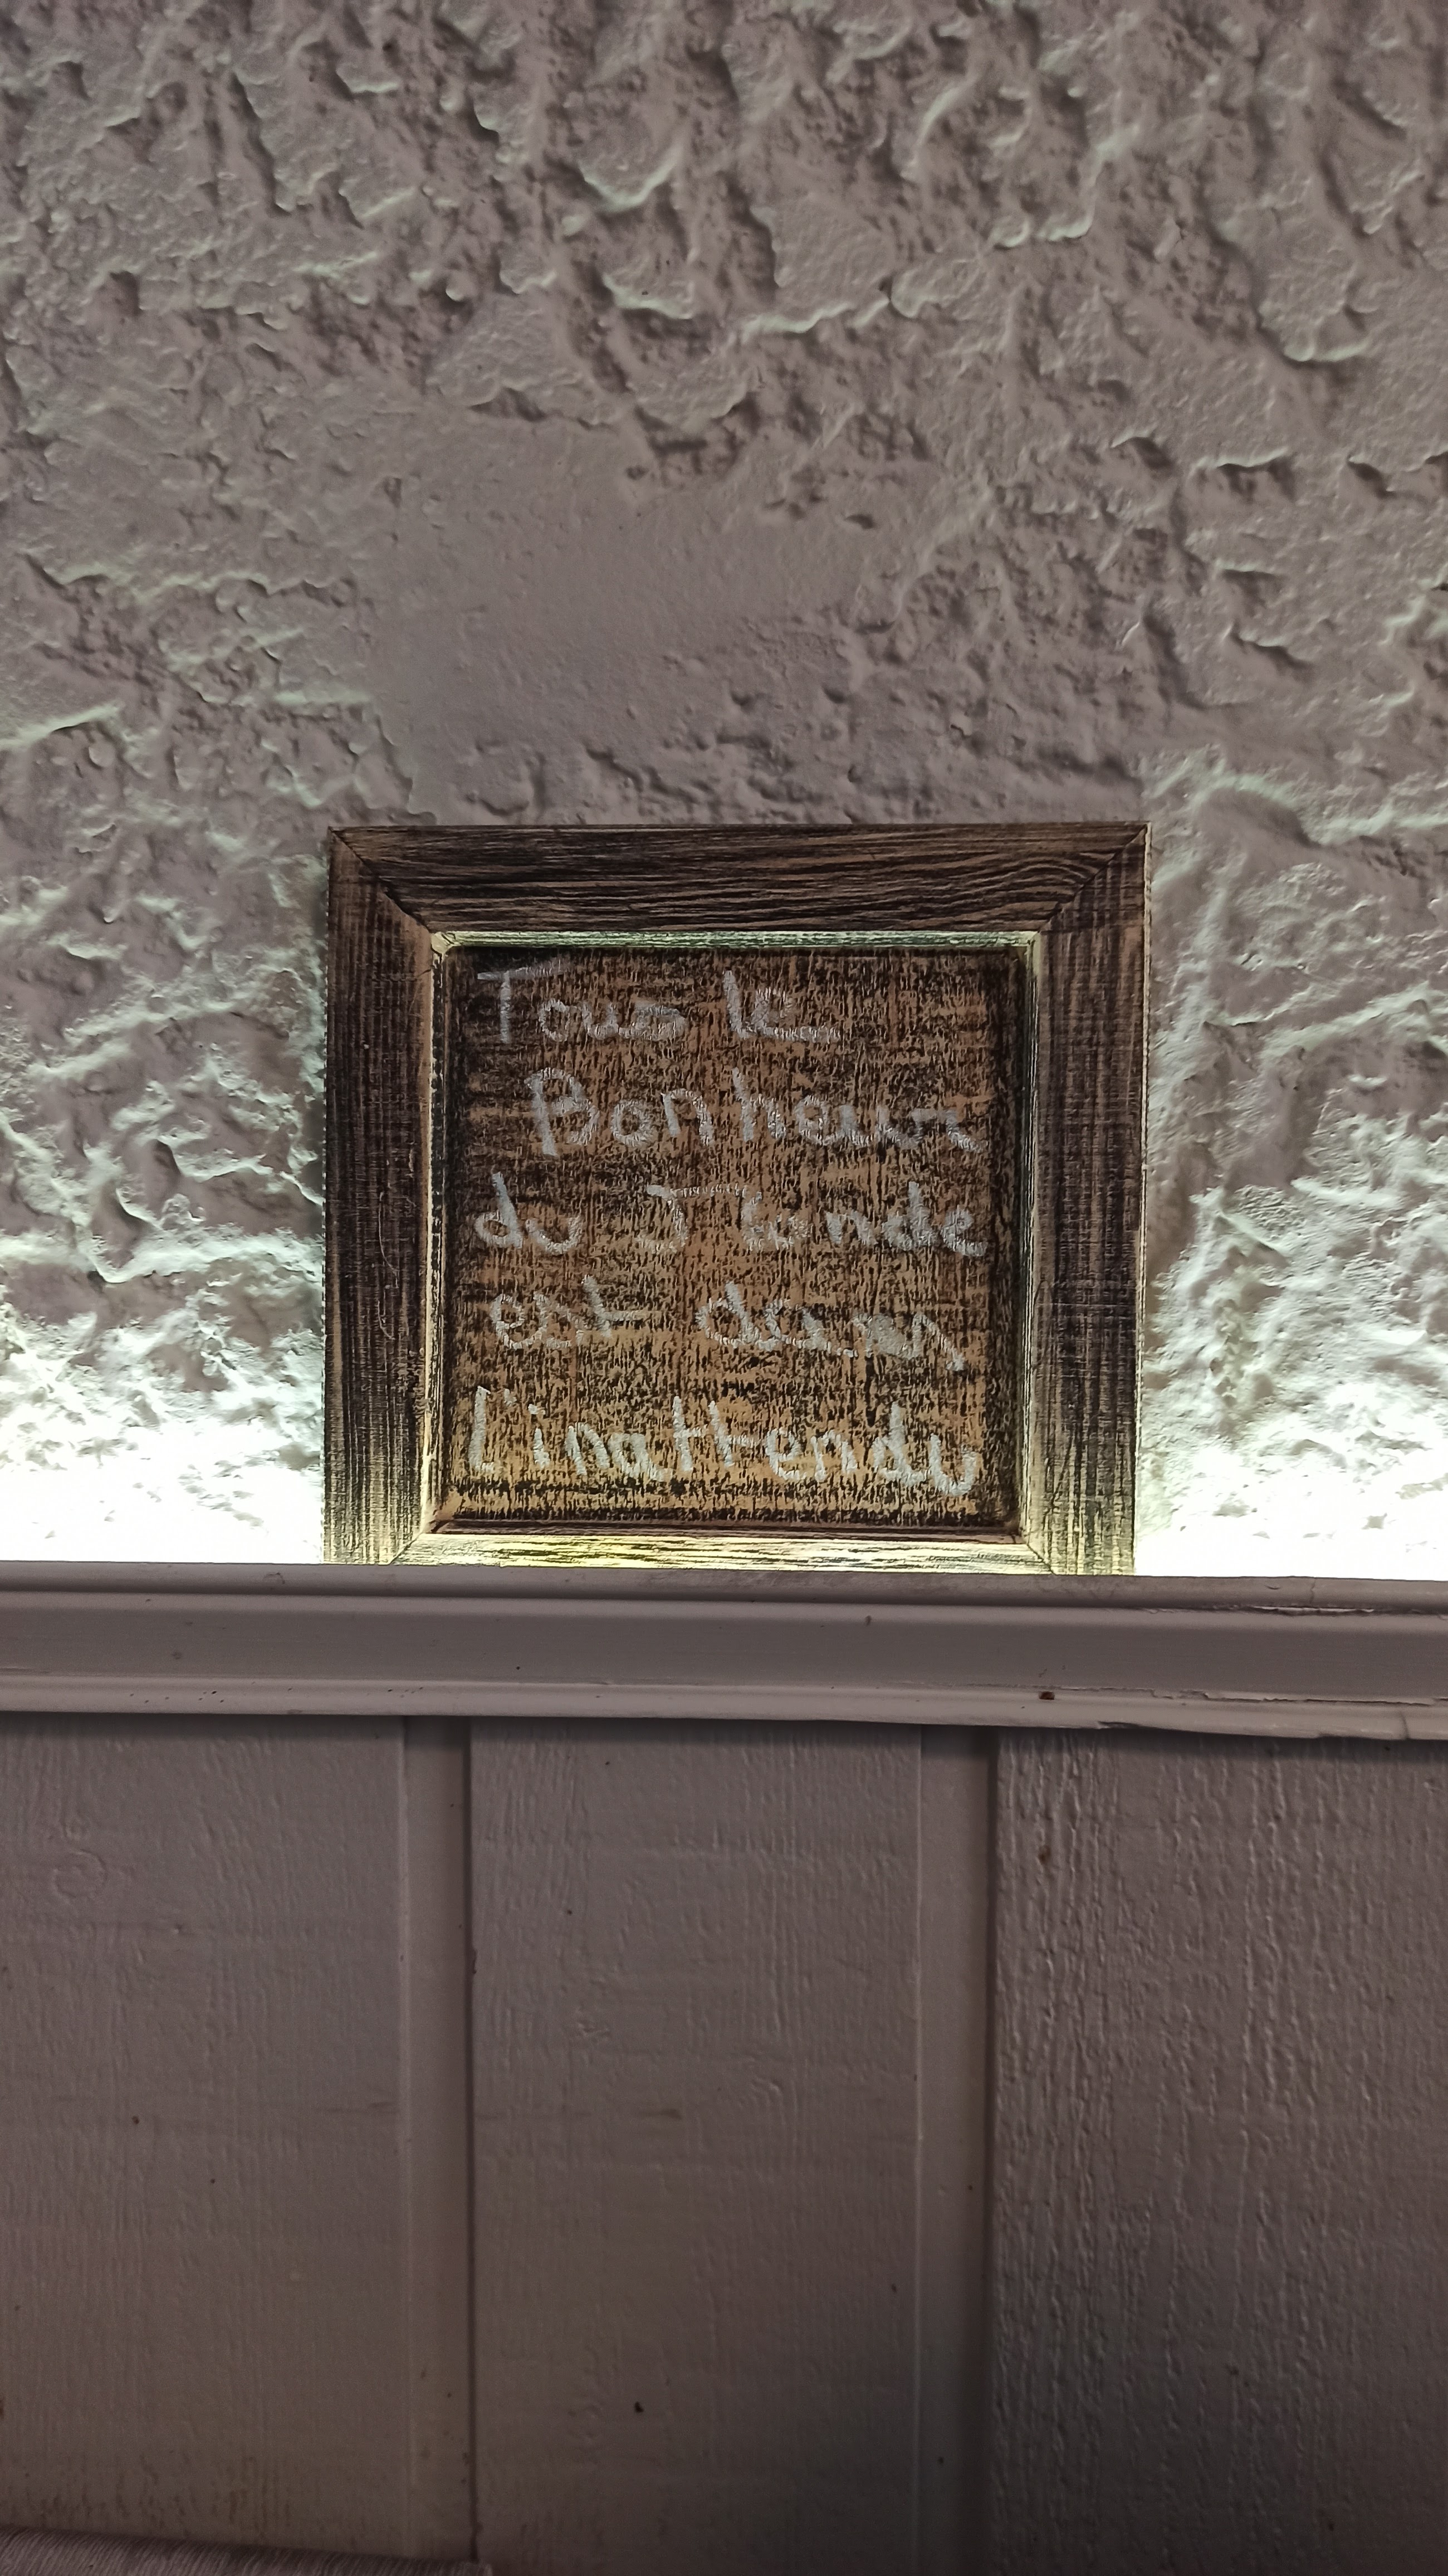 Tous le
Bonheur
du Monde
est dans
l'inattendu